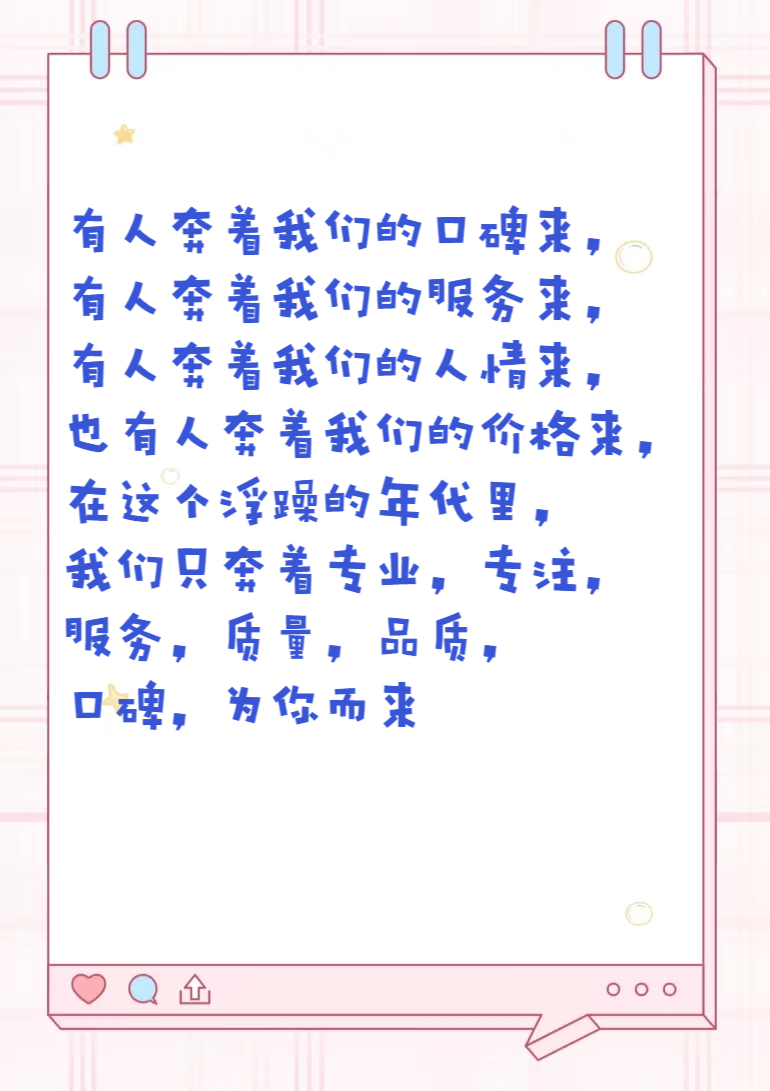 有人奔着我们的口碑来，
有人奔着我们的服务来，
有人奔着我们的人情来，
也有人奔着我们的价格来，
在这个浮躁的年代里，
我们只奔着专业，专注，
服务，质量，品质，
口碑，为你而来